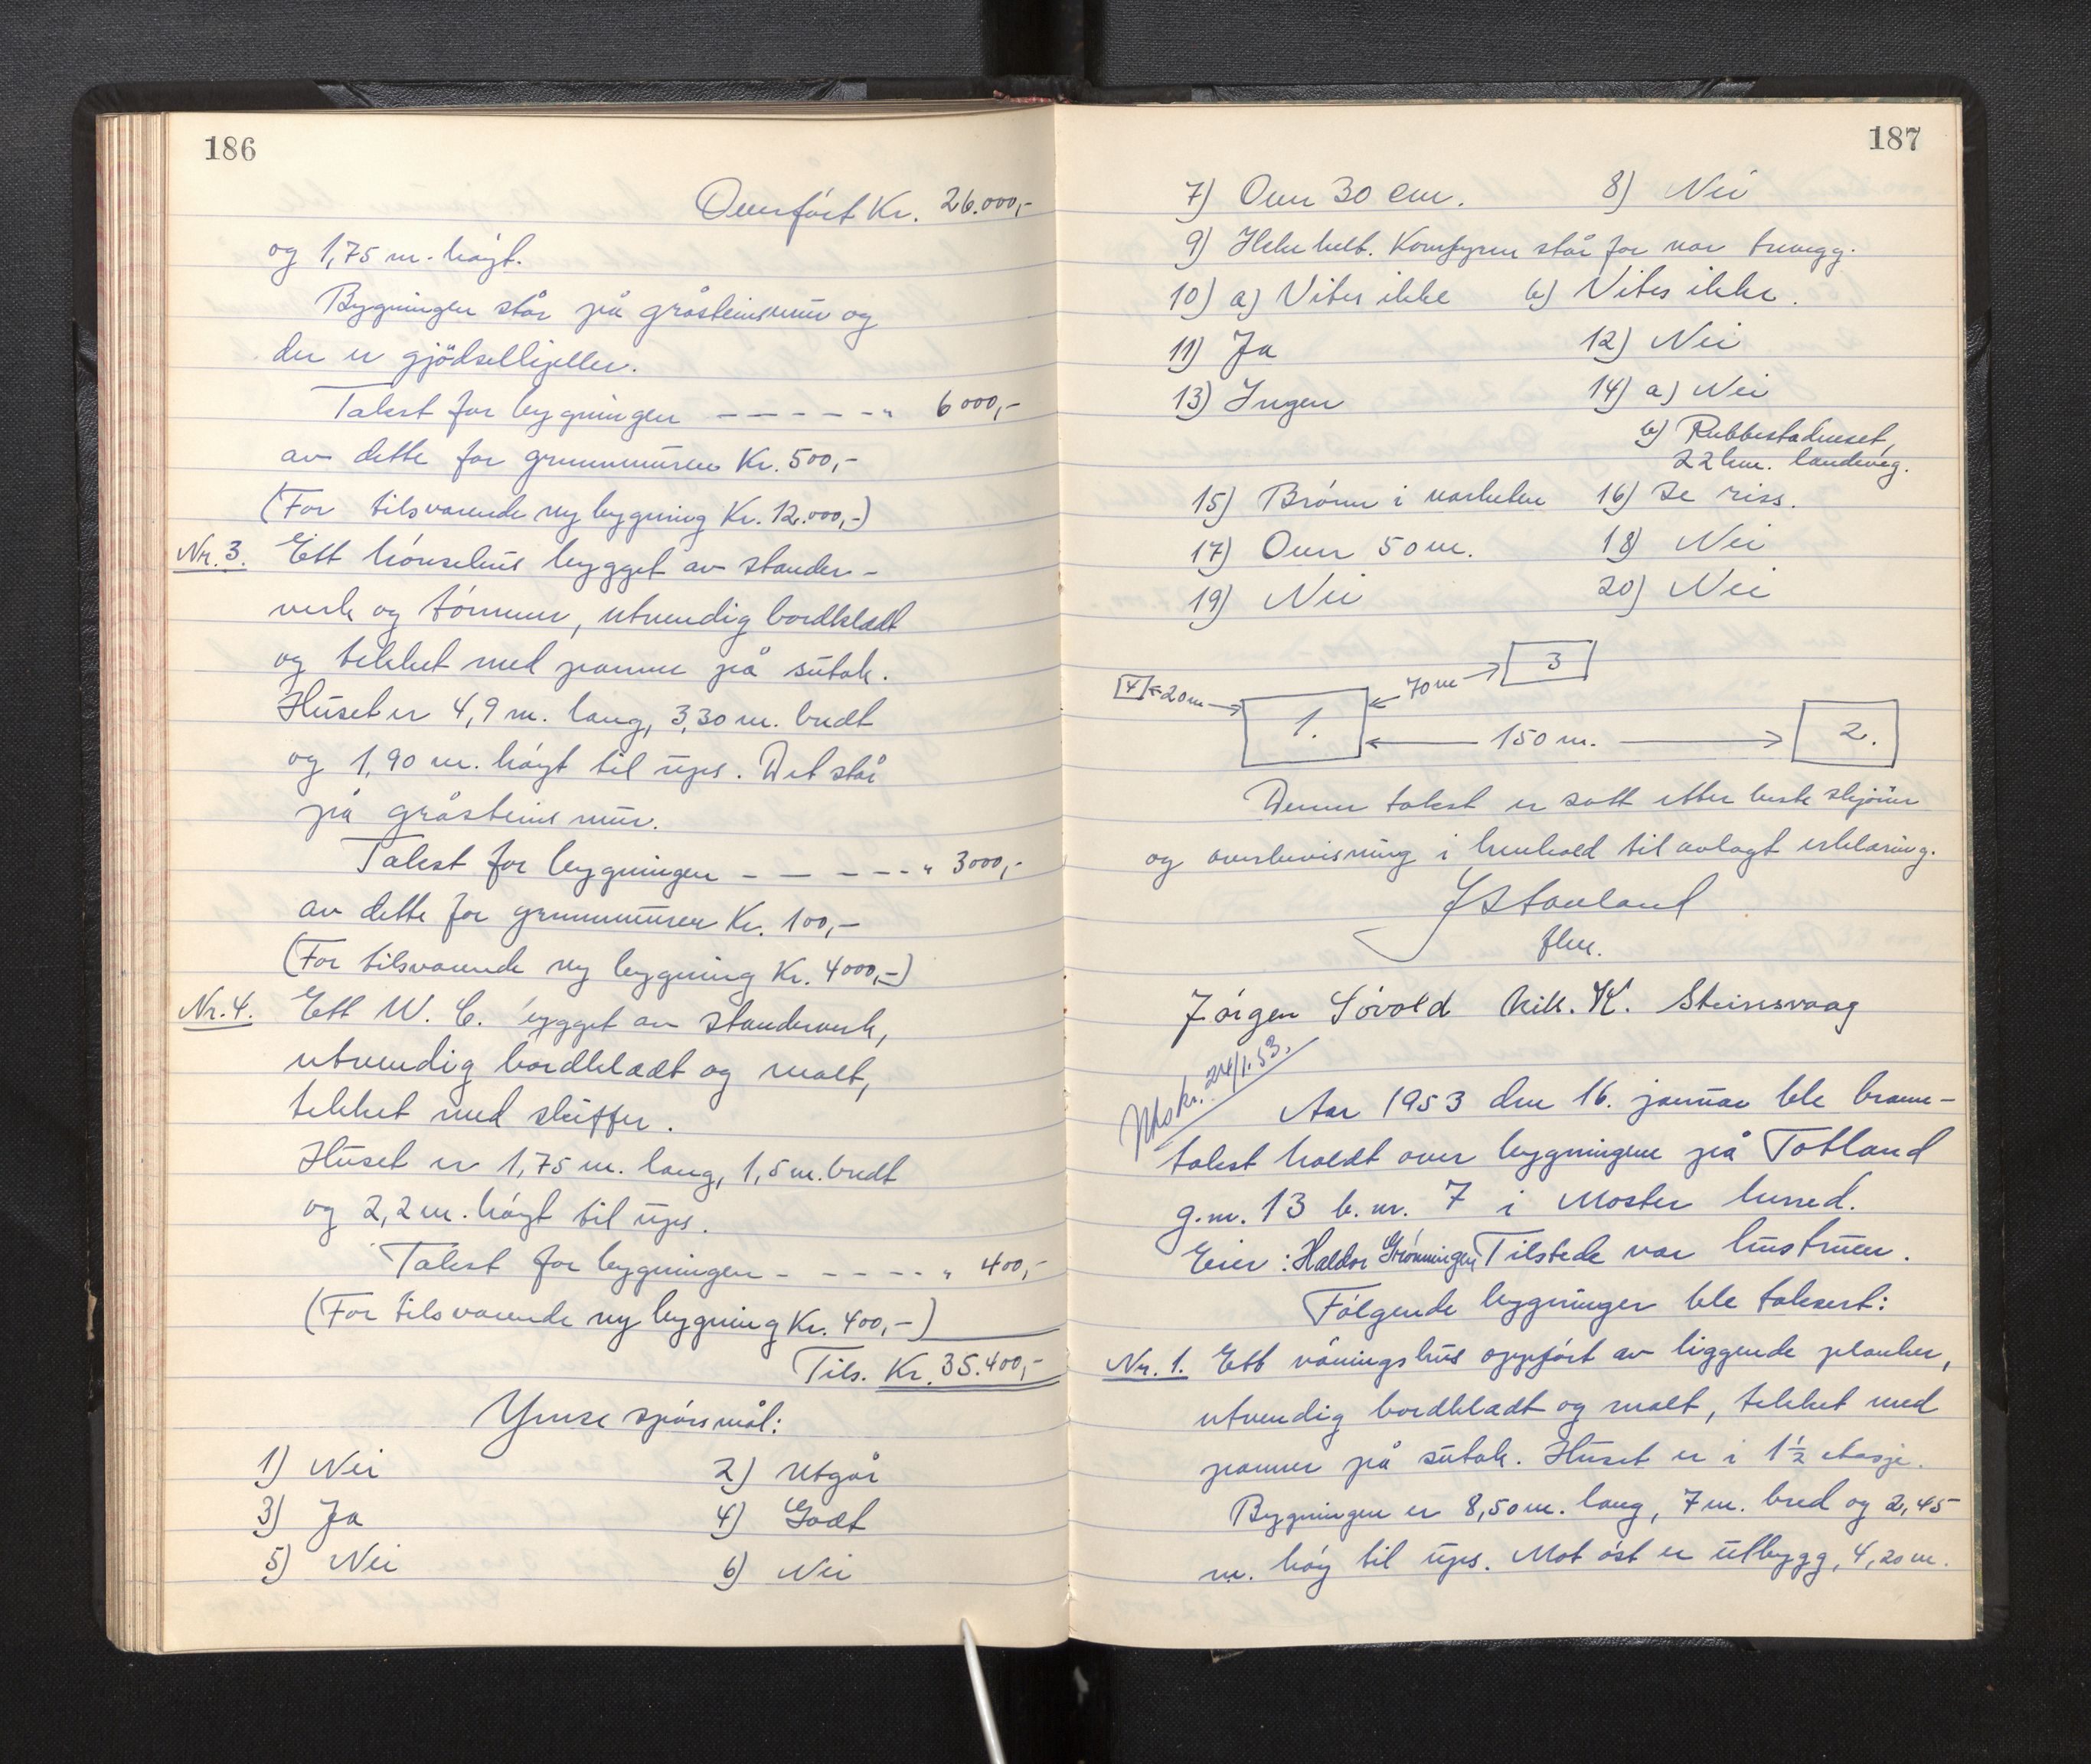 186
Overfört Kr. 26.000,-
og 1,75 m. höyt.
Bygningen står på gråsteinsmur og
der er gjödselkjeller.
Takst for bygningen - - - - - - " 6000,-
av dette for grunnmuren Kr. 500,-
(For tilsvarende ny bygning Kr. 12.000,-)
Nr. 3. Ett hönsehus bygget av stander-
verk og tömmer, utvendig bordkledt
og tekket med panner på sutak.
Huset er 4,9 m. lang, 3,30 m. bredt
og 1,90 m. höyt til ups. Det står
på gråsteins mur.
Takst for bygningen - - - - - - " 3000,-
av dette for grunnmuren Kr. 100,-
(For tilsvarende ny bygning Kr. 4000,-)
Nr. 4. Ett W. C. bygget av standerverk,
utvendig bordkledt og malt,
tekket med skiffer.
Huset er 1,75 m. lang, 1,5 m. bredt
og 2,2 m. höyt til ups.
Takst for bygningen - - - - - " 400,-
(For tilsvarende ny bygning Kr. 400,-)
Tils. Kr. 35.400,-
Ymse spörsmål:
1) Nei 2) Utgår
3) Ja 4) Godt
5) Nei 6) Nei
187
7) Over 30 cm. 8) Nei
9) Komfyren står for var trevegg.
10) a) Vites ikke b) Vites ikke.
11) Ja 12) Nei
13) Ingen 14) a) Nei
b) Rubbestadneset,
22 km. landveg.
15) Brönn i narheten 16) Se riss.
17) Over 50 m. 18) Nei
19) Nei 20) Nei
3
4 20 m 70 m
1. 150 m. 2.
Denne takst er satt etter beste skjönn
og overbevisning i henhold til avlagt erklæring.
JStavland
flm.
Jörgen Sövold Nils. K. Steinsvaag
Utskr. 24/1.53.
Aar 1953 den 16. januar ble brann-
takst holdt over bygningene på Totland
g.nr. 13 b.nr. 7 i Moster herred.
Eier: Haldor Grönningen Tilstede var hustruen.
Fölgende bygninger ble taksert:
Nr. 1. Ett våningshus oppfört av liggende planker,
utvendig bordkledt og malt, tekket med
panner på sutak. Huset er i 1½ etasje.
Bygningen er 8,50 m. lang, 7 m. bred og 2,45
m. höy til ups. Mot öst er utbygg, 4,20 m.